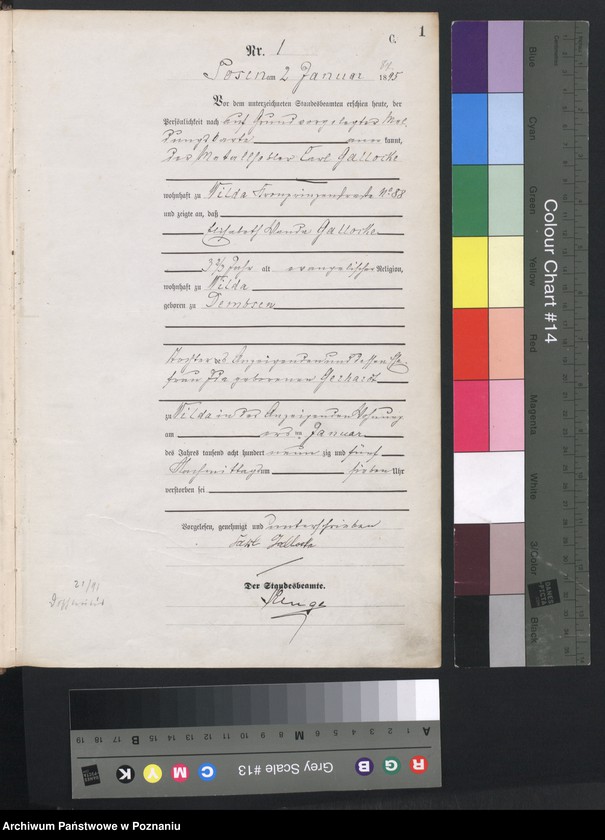 C.
1
Nr. 1
Posen am 2 Januar 1895
Vor dem unterzeichneten Standesbeamten erschien heute, der
Persönlichkeit nach auf Grund vorgelegter Mel
dungskarte aner kannt,
des Carl Gallocke
wohnhaft zu Wilda Kronprinzenstraße No 88
und zeigte an, daß
Elisabeth Wanda Gallocke
alt evangelischer Religion,
wohnhaft zu Wilda
geboren zu Dembsen
Tochter des Anzeigenden und dessen Ehe-
frau Ida geborenen Gerhardt
zu Wilda in des Anzeigenden Wohnung
am ersten Januar
des Jahres tausend acht hundert neun zig und fünf
Nachmittags um sieben Uhr
verstorben sei
Vorgelesen, genehmigt und unterschrieben
Carl Gallocke
Der Standesbeamte.
21/91
Colour Chart #14
Blue
Cyan
Green
Yellow
Red
Magenta
White
3/Color
Black
Grey Scale #13
A 1 2 3 4 5 6 M 8 9 10 11 12 13 14 15 B 17 18 19
R G B C M Y K
Archiwum Państwowe w Poznaniu